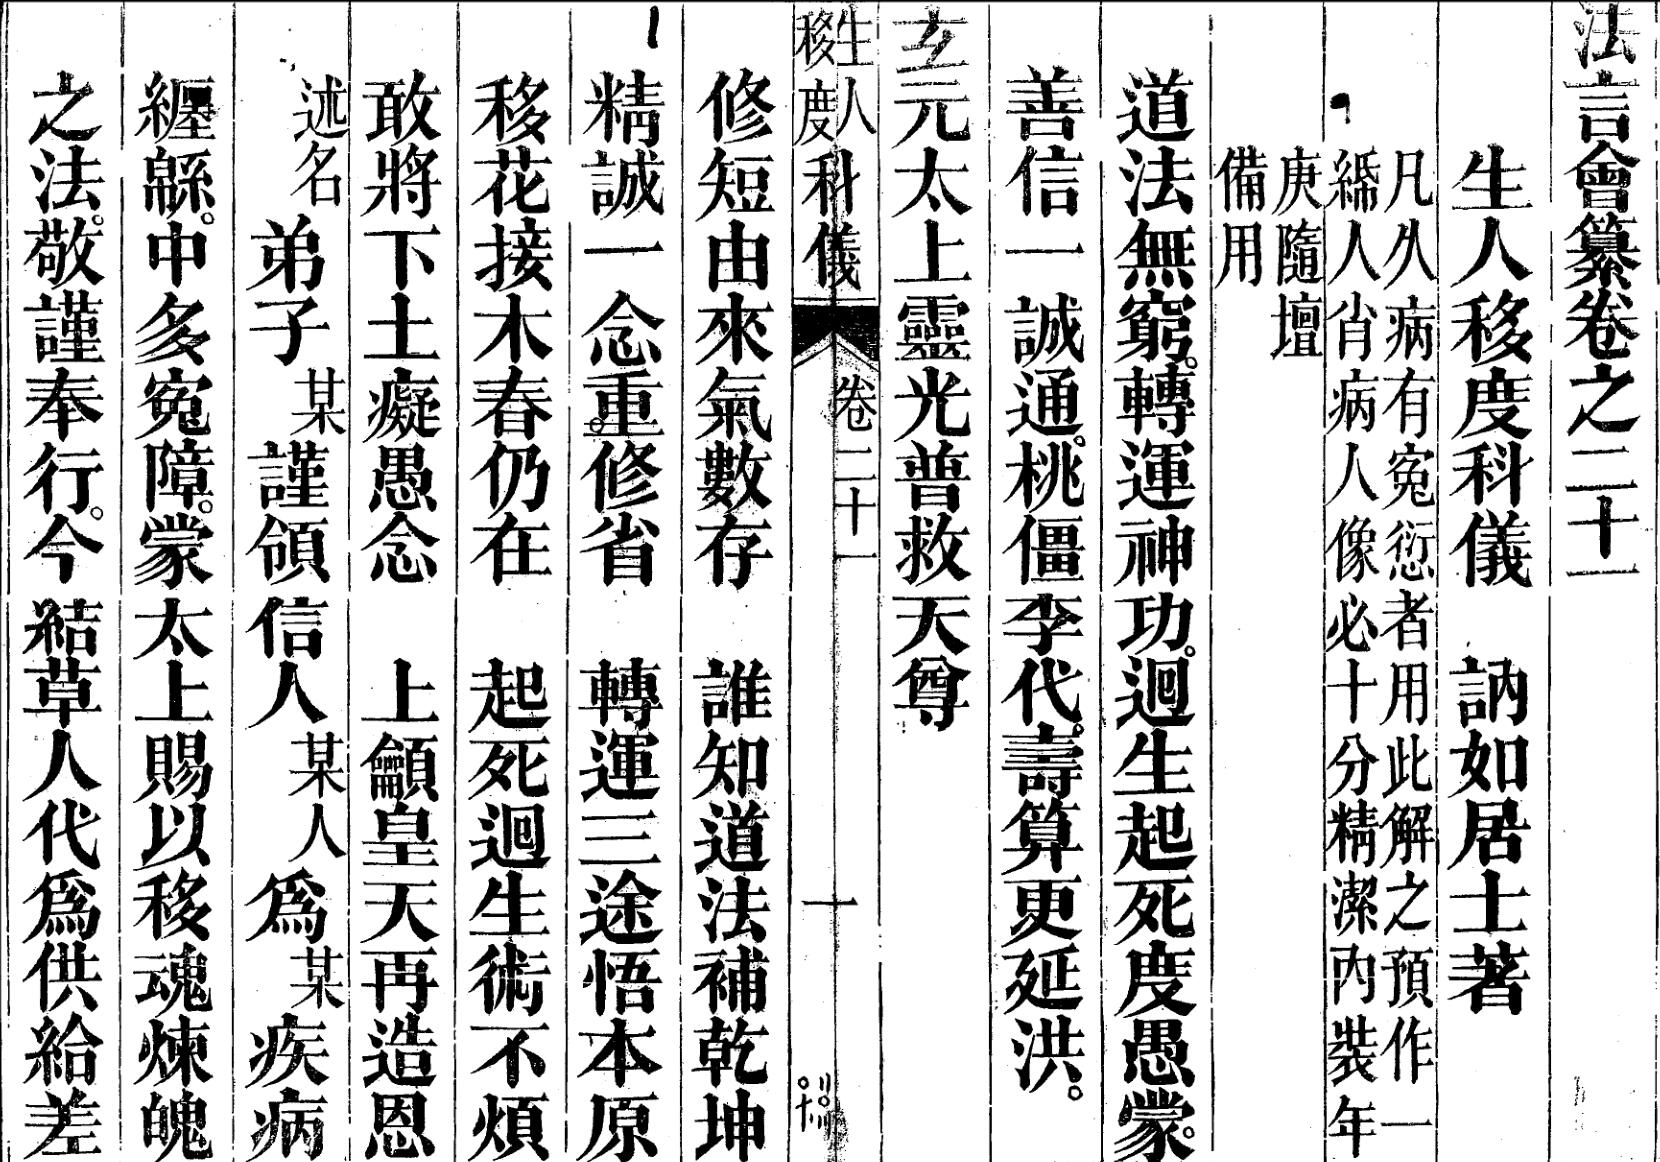 法言會纂卷之二十一
生人移度科儀 訥如居士著
凡久病有寃愆者用此解之預作一
緜人肖病人像必十分精潔內裝年
庚隨壇
備用
道法無窮。轉運神功。迴生起死度愚蒙。
善信一誠通。桃僵李代。壽算更延洪。
玄元太上靈光普救天尊
生人移度科儀 卷二十一 十
修短由來氣數存 誰知道法補乾坤
精誠一念重。修省 轉運三途悟本原
移花接木春仍在 起死迴生術不煩
敢將下士癡愚念 上籲皇天再造恩
述名 弟子某謹領 信人某人爲某疾病
纏緜。中多寃障。蒙 太上賜以移魂煉魄
之法。敬謹奉行。今 結草人代爲供給差